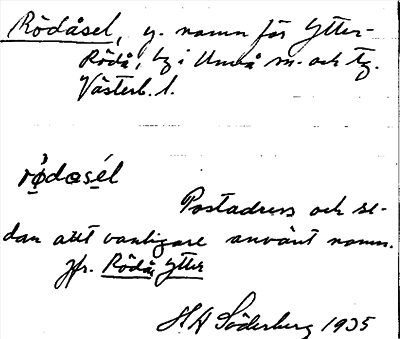 Rödåsel, y. namn för Ytter-
Rödå, by i Umeå sn. och tg.
Västerb. l.
rø̀dasél
Postadress och se-
dan allt vanligare använt namn.
Jfr. Rödå Ytter
HA Söderberg 1935